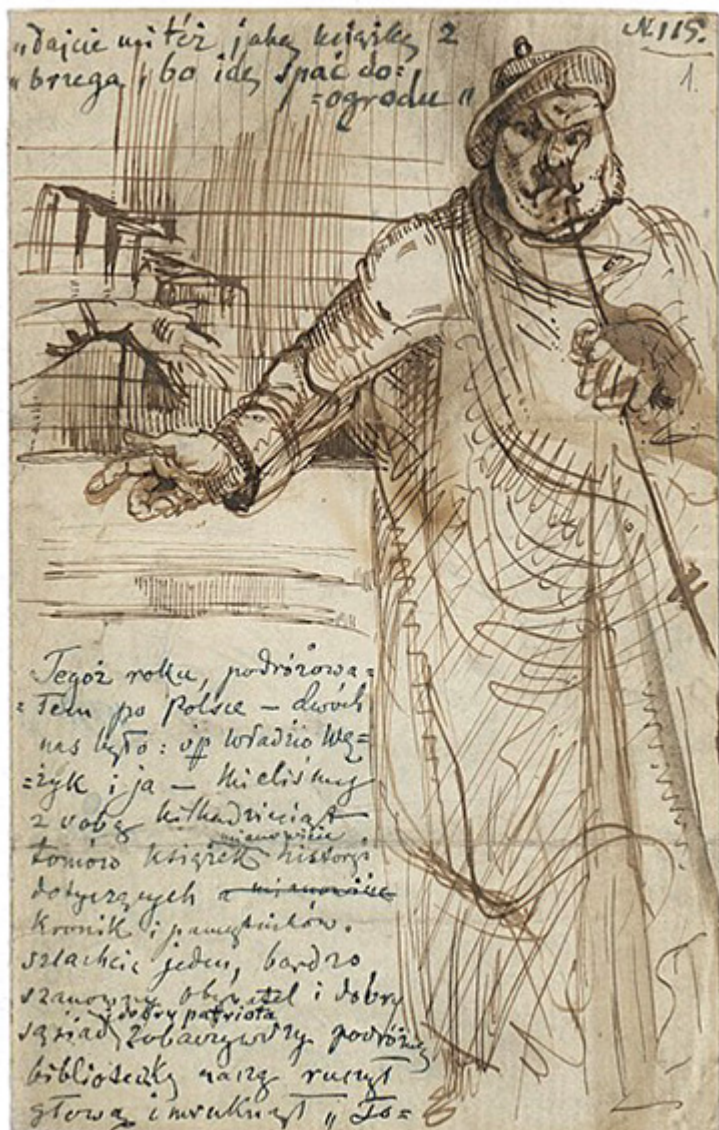 „dajcie mi też jaką książkę z
„brzega, bo idę spać do=
=ogrodu"
N. 115.
1.
Tegoż roku, podróżowa=
=łem po Polsce — dwóch
nas było: śp Władzio Wę=
=żyk i ja — mieliśmy
z sobą kilkadziesiąt
mianowicie
tomów książek history
dotyczących a mianowicie
Kronik i pamiętników.
szlachcic jeden, bardzo
szanowny obywatel i dobry
i dobry patriota
sąsiad, zobaczywszy podróżną
biblioteczkę naszą ruszył
głową i mruknął „To=